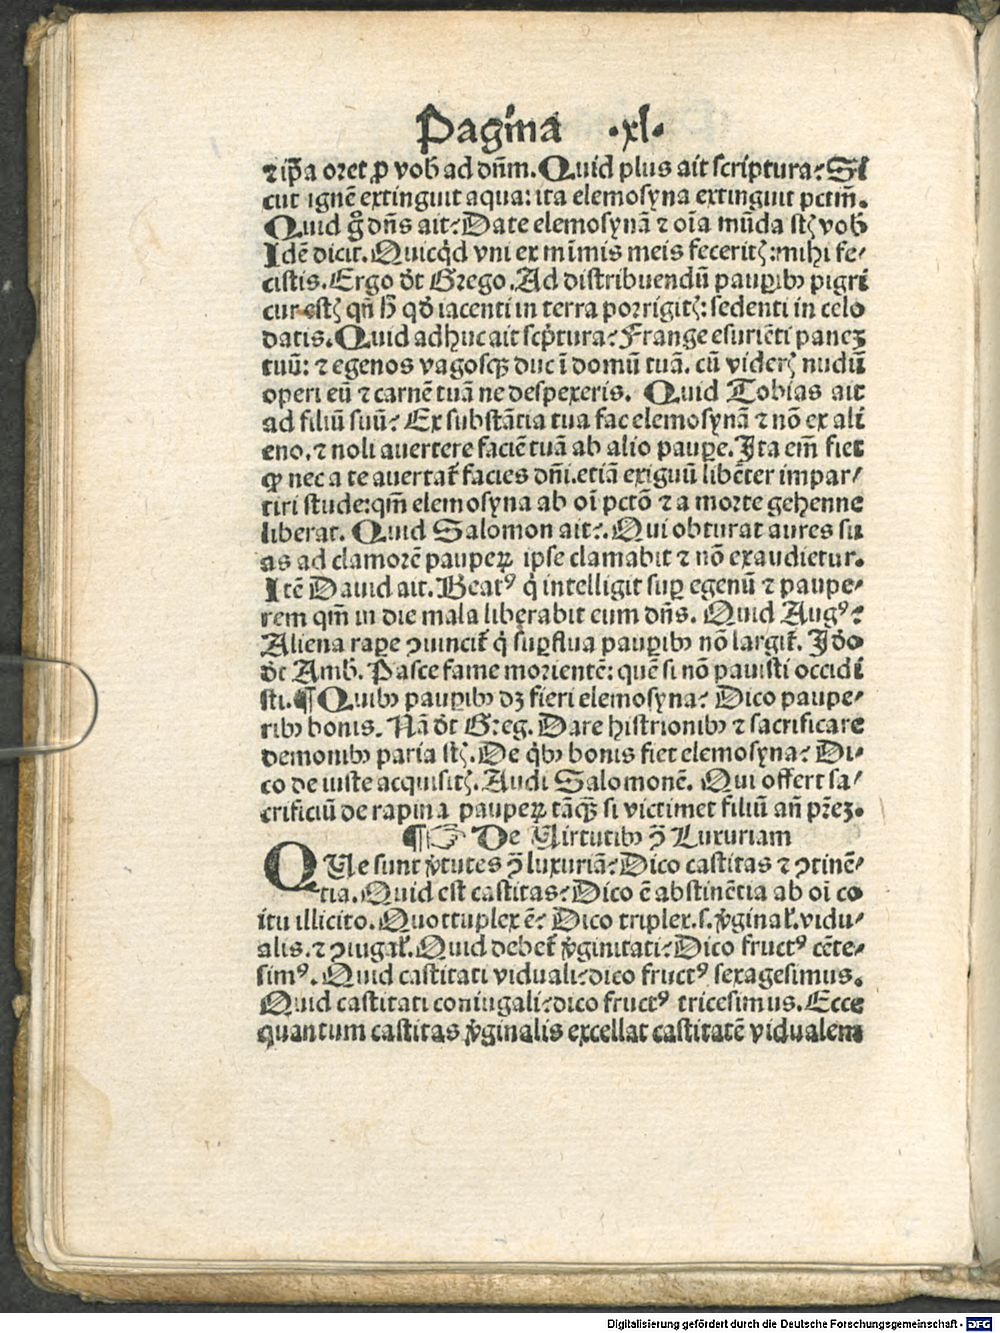 Pagina ·xl·
⁊ ip̃a oret ꝓ vob̃ ad dñm. Quid plus ait scriptura? Si
cut ignẽ extinguit aqua: ita elemosyna extinguit pctm̃.
Quid gͦ dñs ait? Date elemosynã ⁊ oĩa mũda stꝭ vob̃
Idẽ dicit. Quicqͥd vni ex minimis meis feceritꝭ: mihi fe-
cistis. Ergo dc̃t Grego. Ad distribuendũ pauꝑibꝰ pigri
cur estꝭ qñ h̃ qd̃ iacenti in terra porrigitꝭ: sedenti in celo
datis. Quid adhuc ait scpͥtura? Frange esuriẽti paneꝫ
tuũ: ⁊ egenos vagosqꝫ duc ĩ domũ tuã. cũ viderꝭ nudũ
operi eũ ⁊ carnẽ tuã ne despexeris. Quid Tobias ait
ad filiũ suũ? Ex substãtia tua fac elemosynã ⁊ nõ ex ali
eno. ⁊ noli auertere faciẽ tuã ab alio pauꝑe. Ita em̃ fiet
ꝙ nec a te auertat᷑ facies dñi. etiã exiguũ libẽter impar-
tiri stude: qm̃ elemosyna ab oĩ pctõ ⁊ a morte gehenne
liberat. Quid Salomon ait? Qui obturat aures su
as ad clamorẽ pauperꝝ ipse clamabit ⁊ nõ exaudietur.
Itẽ Dauid ait. Beatꝰ qͥ intelligit suꝑ egenũ ⁊ paupe-
rem qm̃ in die mala liberabit eum dñs. Quid Augꝰ?
Aliena raꝑe ꝯuincit᷑ qͥ suꝑflua pauꝑibꝰ nõ largit᷑. Idõ
dc̃t Amb̃. Pasce fame morientẽ: quẽ si nõ pauisti occidi
sti. ¶ Quibꝰ pauꝑibꝰ dꝫ fieri elemosyna? Dico paupe-
ribꝰ bonis. Nã dc̃t Greg. Dare histrionibꝰ ⁊ sacrificare
demonibꝰ paria stꝭ. De qͥbꝰ bonis fiet elemosyna? Di-
co de iuste acquisitꝭ. Audi Salomonẽ. Qui offert sa-
crificiũ de rapina pauperꝝ tãqꝫ si victimet filiũ añ pr̃eꝫ.
¶ ☞ De Virtutibꝰ ꝯ̃ Luxuriam
QUe sunt v̾tutes ꝯ̃ luxuriã? Dico castitas ⁊ ꝯtinẽ-
tia. Quid est castitas? Dico ẽ abstinẽtia ab oĩ co
itu illicito. Quottuplex ẽ? Dico triplex. s. v̾ginal᷑. vidu-
alis. ⁊ ꝯiugal᷑. Quid debet᷑ v̾ginitati? Dico fructꝰ cẽte-
simꝰ. Quid castitati viduali? dico fructꝰ sexagesimus.
Quid castitati coniugali? dico fructꝰ tricesimus. Ecce
quantum castitas v̾ginalis excellat castitatẽ vidualem
Digitalisierung gefördert durch die Deutsche Forschungsgemeinschaft - DFG